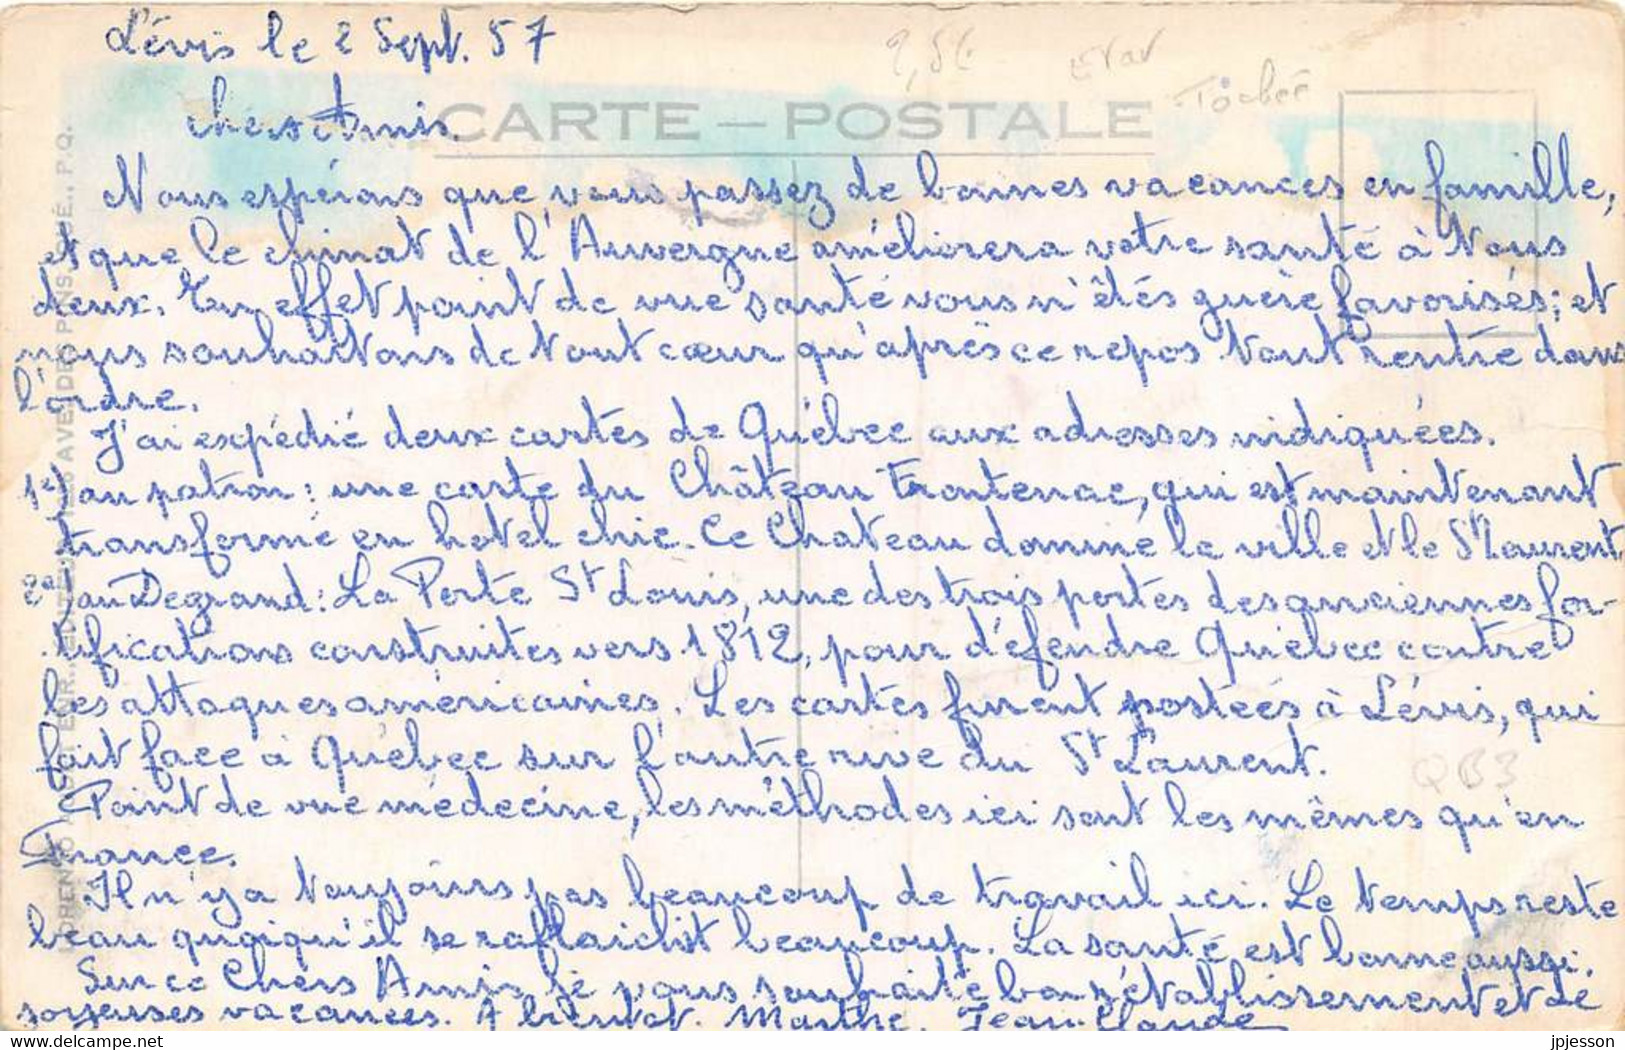 Lévis le 2 Sept. 57
9,5€ Etat Tachée
CARTE - POSTALE
chers Amis.
Nous espérons que vous passez de bonnes vacances en famille,
et que le climat de l'Auvergne améliorera votre santé à tous
deux. En effet point de vue santé vous n'êtes guère favorisés; et
nous souhaitons de tout cœur qu'après ce repos tout rentre dans
l'ordre.
J'ai expédié deux cartes de Québec aux adresses indiquées.
1e) au patron: une carte du Château Frontenac, qui est maintenant
transformé en hotel chic. Ce Chateau domine la ville et le St Laurent
2e) au Degrand: La Porte St Louis, une des trois portes des anciennes for-
tifications construites vers 1812, pour défendre Québec contre
les attaques américaines. Les cartes furent postées à Lévis, qui
fait face à Québec sur l'autre rive du St Laurent.
QB3
Point de vue médecine, les méthodes ici sont les mêmes qu'en
France.
Il n'y a toujours pas beaucoup de travail ici. Le temps reste
beau quoiqu'il se raffraichit beaucoup. La santé est bonne aussi.
Sur ce Chers Amis je vous souhaite bon rétablissement et de
joyeuses vacances. A bientot. Marthe. Jean-Claude
AVE. DES PINS, P.Q.
jpjesson